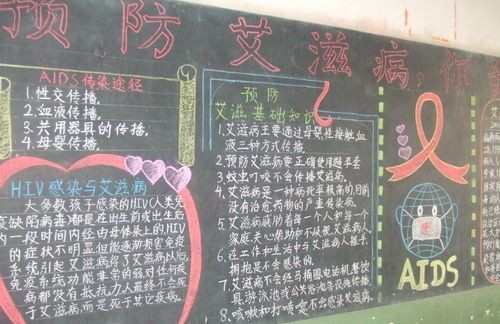 预防艾滋病,
AIDS传染途径
1.性交传播.
2.血液传播.
3.共用器具的传播.
4.母婴传播.
HIV感染与艾滋病
大多数孩子感染的HIV(人类免
疫缺陷病毒)都是在出生前或出生后
的一段时间内经由母体染上的.HIV
的症状不明显但能逐渐损害免疫
系统引起艾滋病.得了艾滋病以后,
免疫系统功能非常的弱对任何疾
病都没有抵抗力人最终不会死
于艾滋病而是死于其它疾病.
预防
艾滋基础知识
1.艾滋病主要通过母婴性接触血
液三种方式传播.
2.预防艾滋病要正确使用
3.蚊虫叮咬不会传播艾滋病.
4.艾滋病是一种病死率极高的目前
没有治愈药物的严重传染病.
5.艾滋病威胁着每一个人和每一个
家庭.关心帮助和不歧视艾滋病人.
6.在工作和生活中与艾滋病人握手,
拥抱是不会感染的.
7.艾滋病不会经马桶圈电话机,餐饮
具游泳池或公共浴池等设施传播.
8.咳嗽和打喷嚏不会感染艾滋病.
AIDS